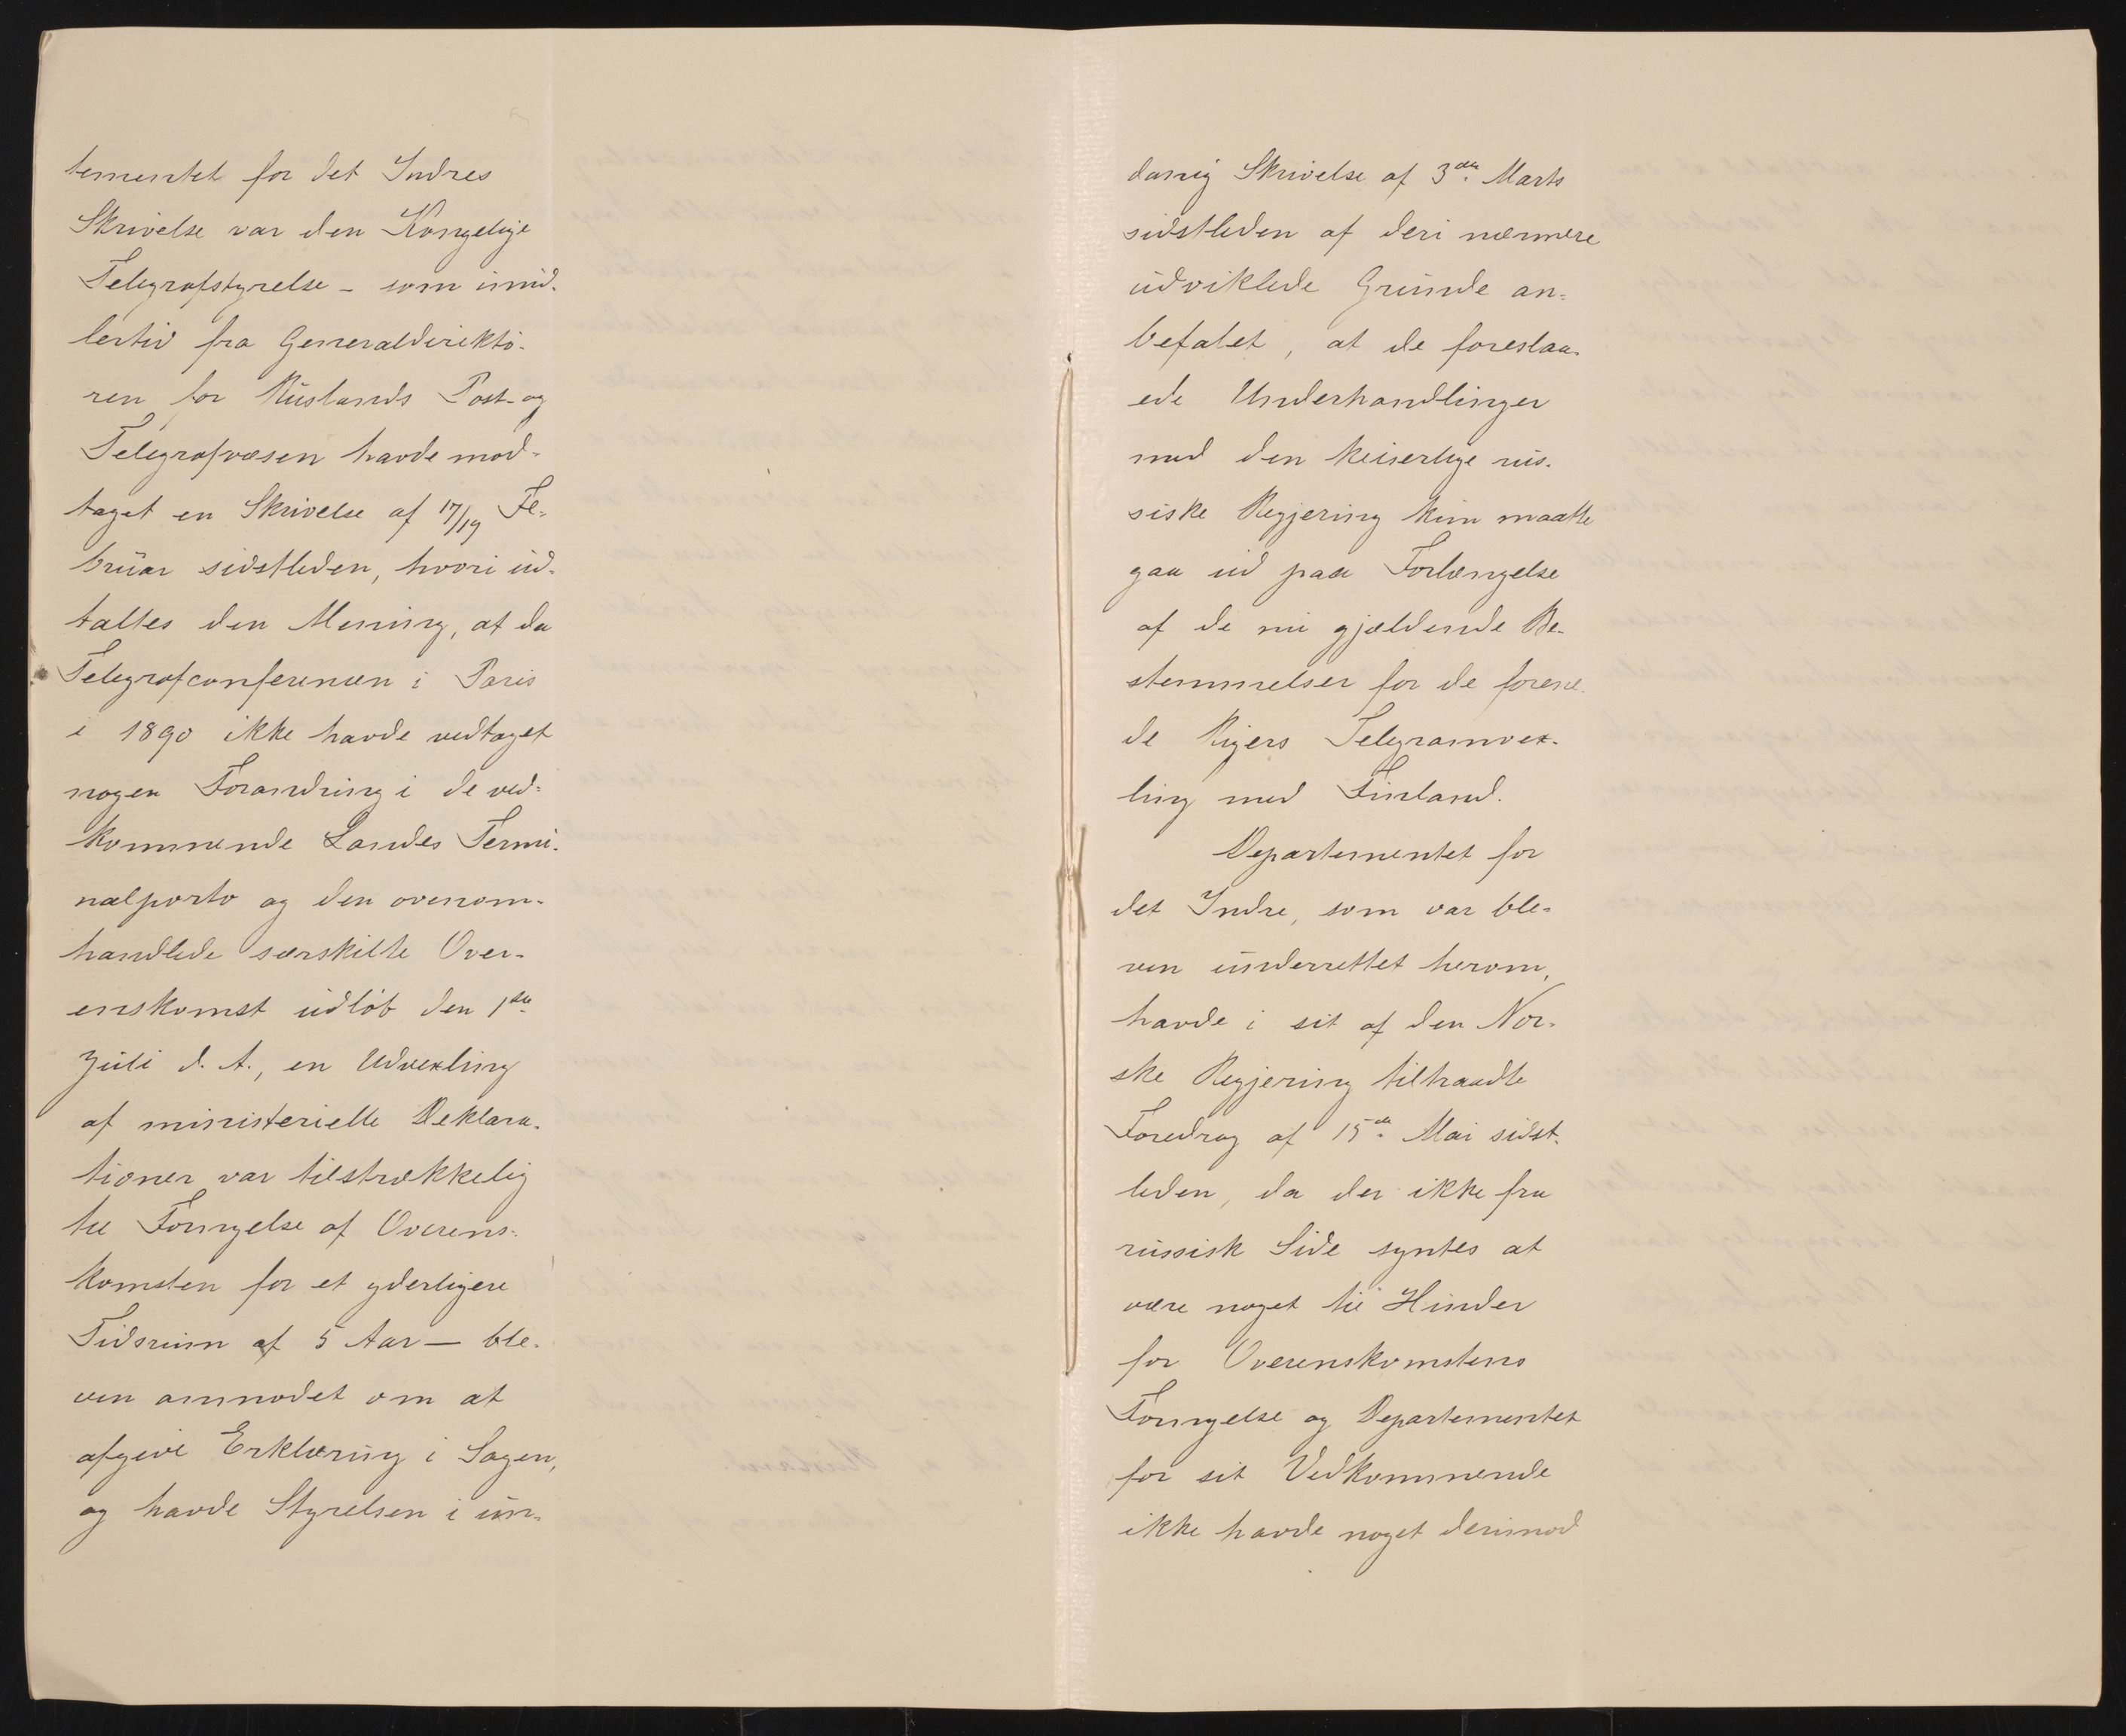 tementet for det Indres
Skrivelse var den Kongelige
Telegrafstyrelse – som imid-
lertid fra Generaldirektö-
ren for Ruslands Post- og
Telegrafvæsen havde mod-
taget en Skrivelse af 17/19 Fe-
bruar sidstleden, hvori ud-
taltes den Mening, at da
Telegrafconferencen i Paris
i 1890 ikke havde vedtaget
nogen Forandring i de ved-
kommende Landes Termi-
nalporto og den ovenom-
handlede særskilte Over-
enskomst udløb den 1ste
Juli d. A., en Udvexling
af ministerielle Deklara-
tioner var tilstrækkelig
til Fornyelse af Overens-
komsten for et yderligere
Tidsrum af 5 Aar — ble-
ven anmodet om at
afgive Erklæring i Sagen,
og havde Styrelsen i un-
danig Skrivelse af 3die Marts
sidstleden af deri nærmere
udviklede Grunde an-
befalet, at de foreslaa-
ede Underhandlinger
med den keiserlige rus-
siske Regjering kun maatte
gaa ud paa Forlængelse
af de nu gjældende Be-
stemmelser for de forene-
de Rigers Telegramvex-
ling med Finland.
Departementet for
det Indre, som var ble-
ven underrettet herom,
havde i sit af den Nor-
ske Regjering tiltraadte
Foredrag af 15de Mai sidst-
leden, da der ikke fra
russisk Side syntes at
være noget til Hinder
for Overenskomstens
Fornyelse og Departementet
for sit Vedkommende
ikke havde noget derimod